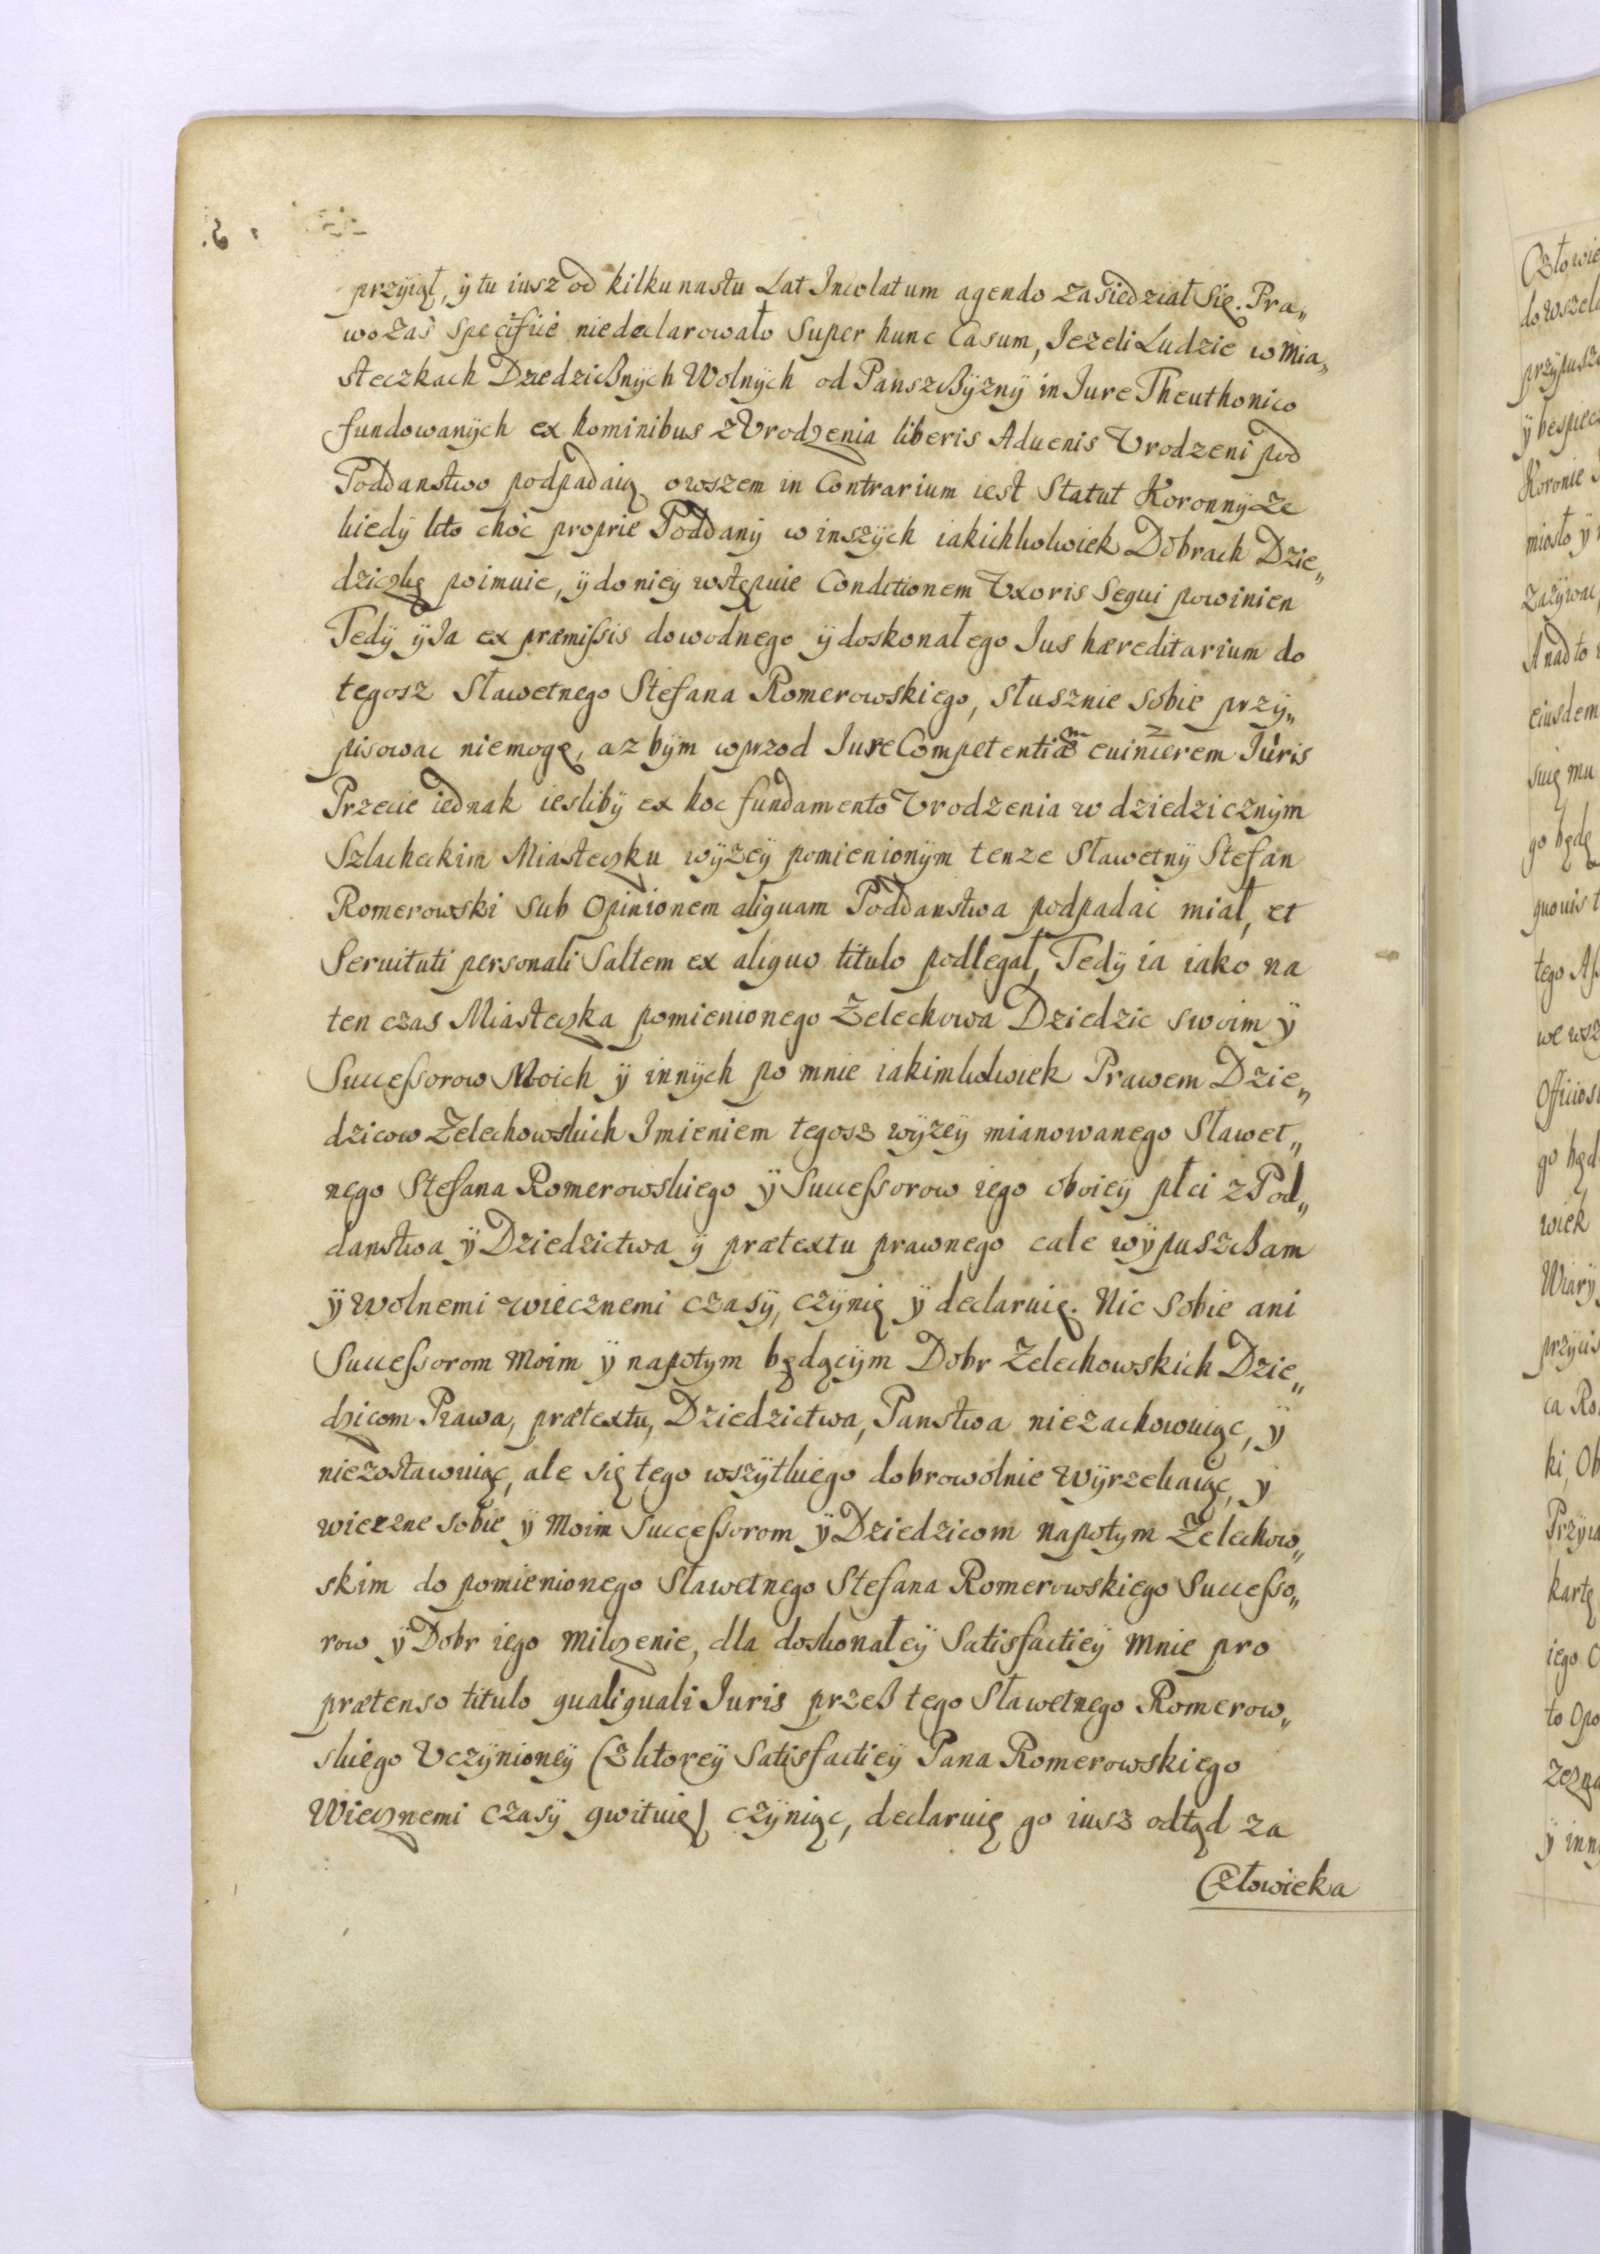 przyiął, ÿ tu iusz od kilkunastu Lat Incolatum agendo zasiedział Się. Pra„
wo zaś specifice niedeclarowało Super hunc Casum, Jezeli Ludzie w Mia„
steczkach Dziedzicznÿch Wolnÿch od Panszczÿznÿ in Jure Theuthonico
fundowanÿch ex hominibus z Vrodzenia liberis Aduenis Vrodzeni pod
Poddanstwo podpadaią owszem in Contrarium iest Statut Koronnÿ Ze
kiedÿ kto choc proprie Poddanÿ w inszÿch iakichkolwiek Dobrach Dzie„
dziczkę poimuie, ÿ do nieÿ wstępuie Conditionem Vxoris Segui powinien
Tedÿ ÿ Ja ex præmissis dowodnego ÿ doskonałego Jus hæreditarium do
tegosz Sławetnego Stefana Romerowskiego, słusznie sobie przÿ„
pisowac niemogę, azbÿm wprzod Jure Competentiam euincerem Juris
Przecie iednak ieslibÿ ex hoc fundamento Vrodzenia w dziedzicznÿm
Szlacheckim Miasteczku wÿzeÿ pomienionÿm tenze Sławetnÿ Stefan
Romerowski Sub Opinionem aliguam Poddanstwa podpadać miał, et
Seruituti personali Saltem ex aliguo titulo podlegał, Tedÿ ia iako na
ten czas Miasteczka pomienionego Zelechowa Dziedzic swoim ÿ
Successorow Moich ÿ innÿch po mnie iakimkolwiek Prawem Dzie„
dzicow Zelechowskich Imieniem tegosz wÿzeÿ mianowanego Sławet„
nego Stefana Romerowskiego ÿ Successorow iego oboieÿ płci z Pod„
danstwa ÿ Dziedzictwa ÿ prætextu prawnego cale wÿpuszczam
ÿ wolnemi wiecznemi czasÿ, czÿnię ÿ declaruię. Nic Sobie ani
Successorom Moim ÿ napotym będącÿm Dobr Zelechowskich Dzie„
dzicom Prawa, prætextu, Dziedzictwa, Panstwa niezachowuiąc, ÿ
niezostawuiąc, ale się tego wszÿtkiego dobrowolnie Wÿrzekaiąc, ÿ
wieczne sobie ÿ Moim Successorom ÿ Dziedzicom napotym Zelechow„
skim do pomienionego Sławetnego Stefana Romerowskiego Successo„
row ÿ Dobr iego milczenie, dla doskonałeÿ Satisfactieÿ Mnie pro
prætenso titulo gualiguali Juris przez tego Sławetnego Romerow„
skiego Vczÿnioneÿ (z ktoreÿ Satisfactieÿ Pana Romerowskiego
Wiecznemi czasÿ gwituię) czÿniąc, declaruię go iusz odtąd za
Człowieka